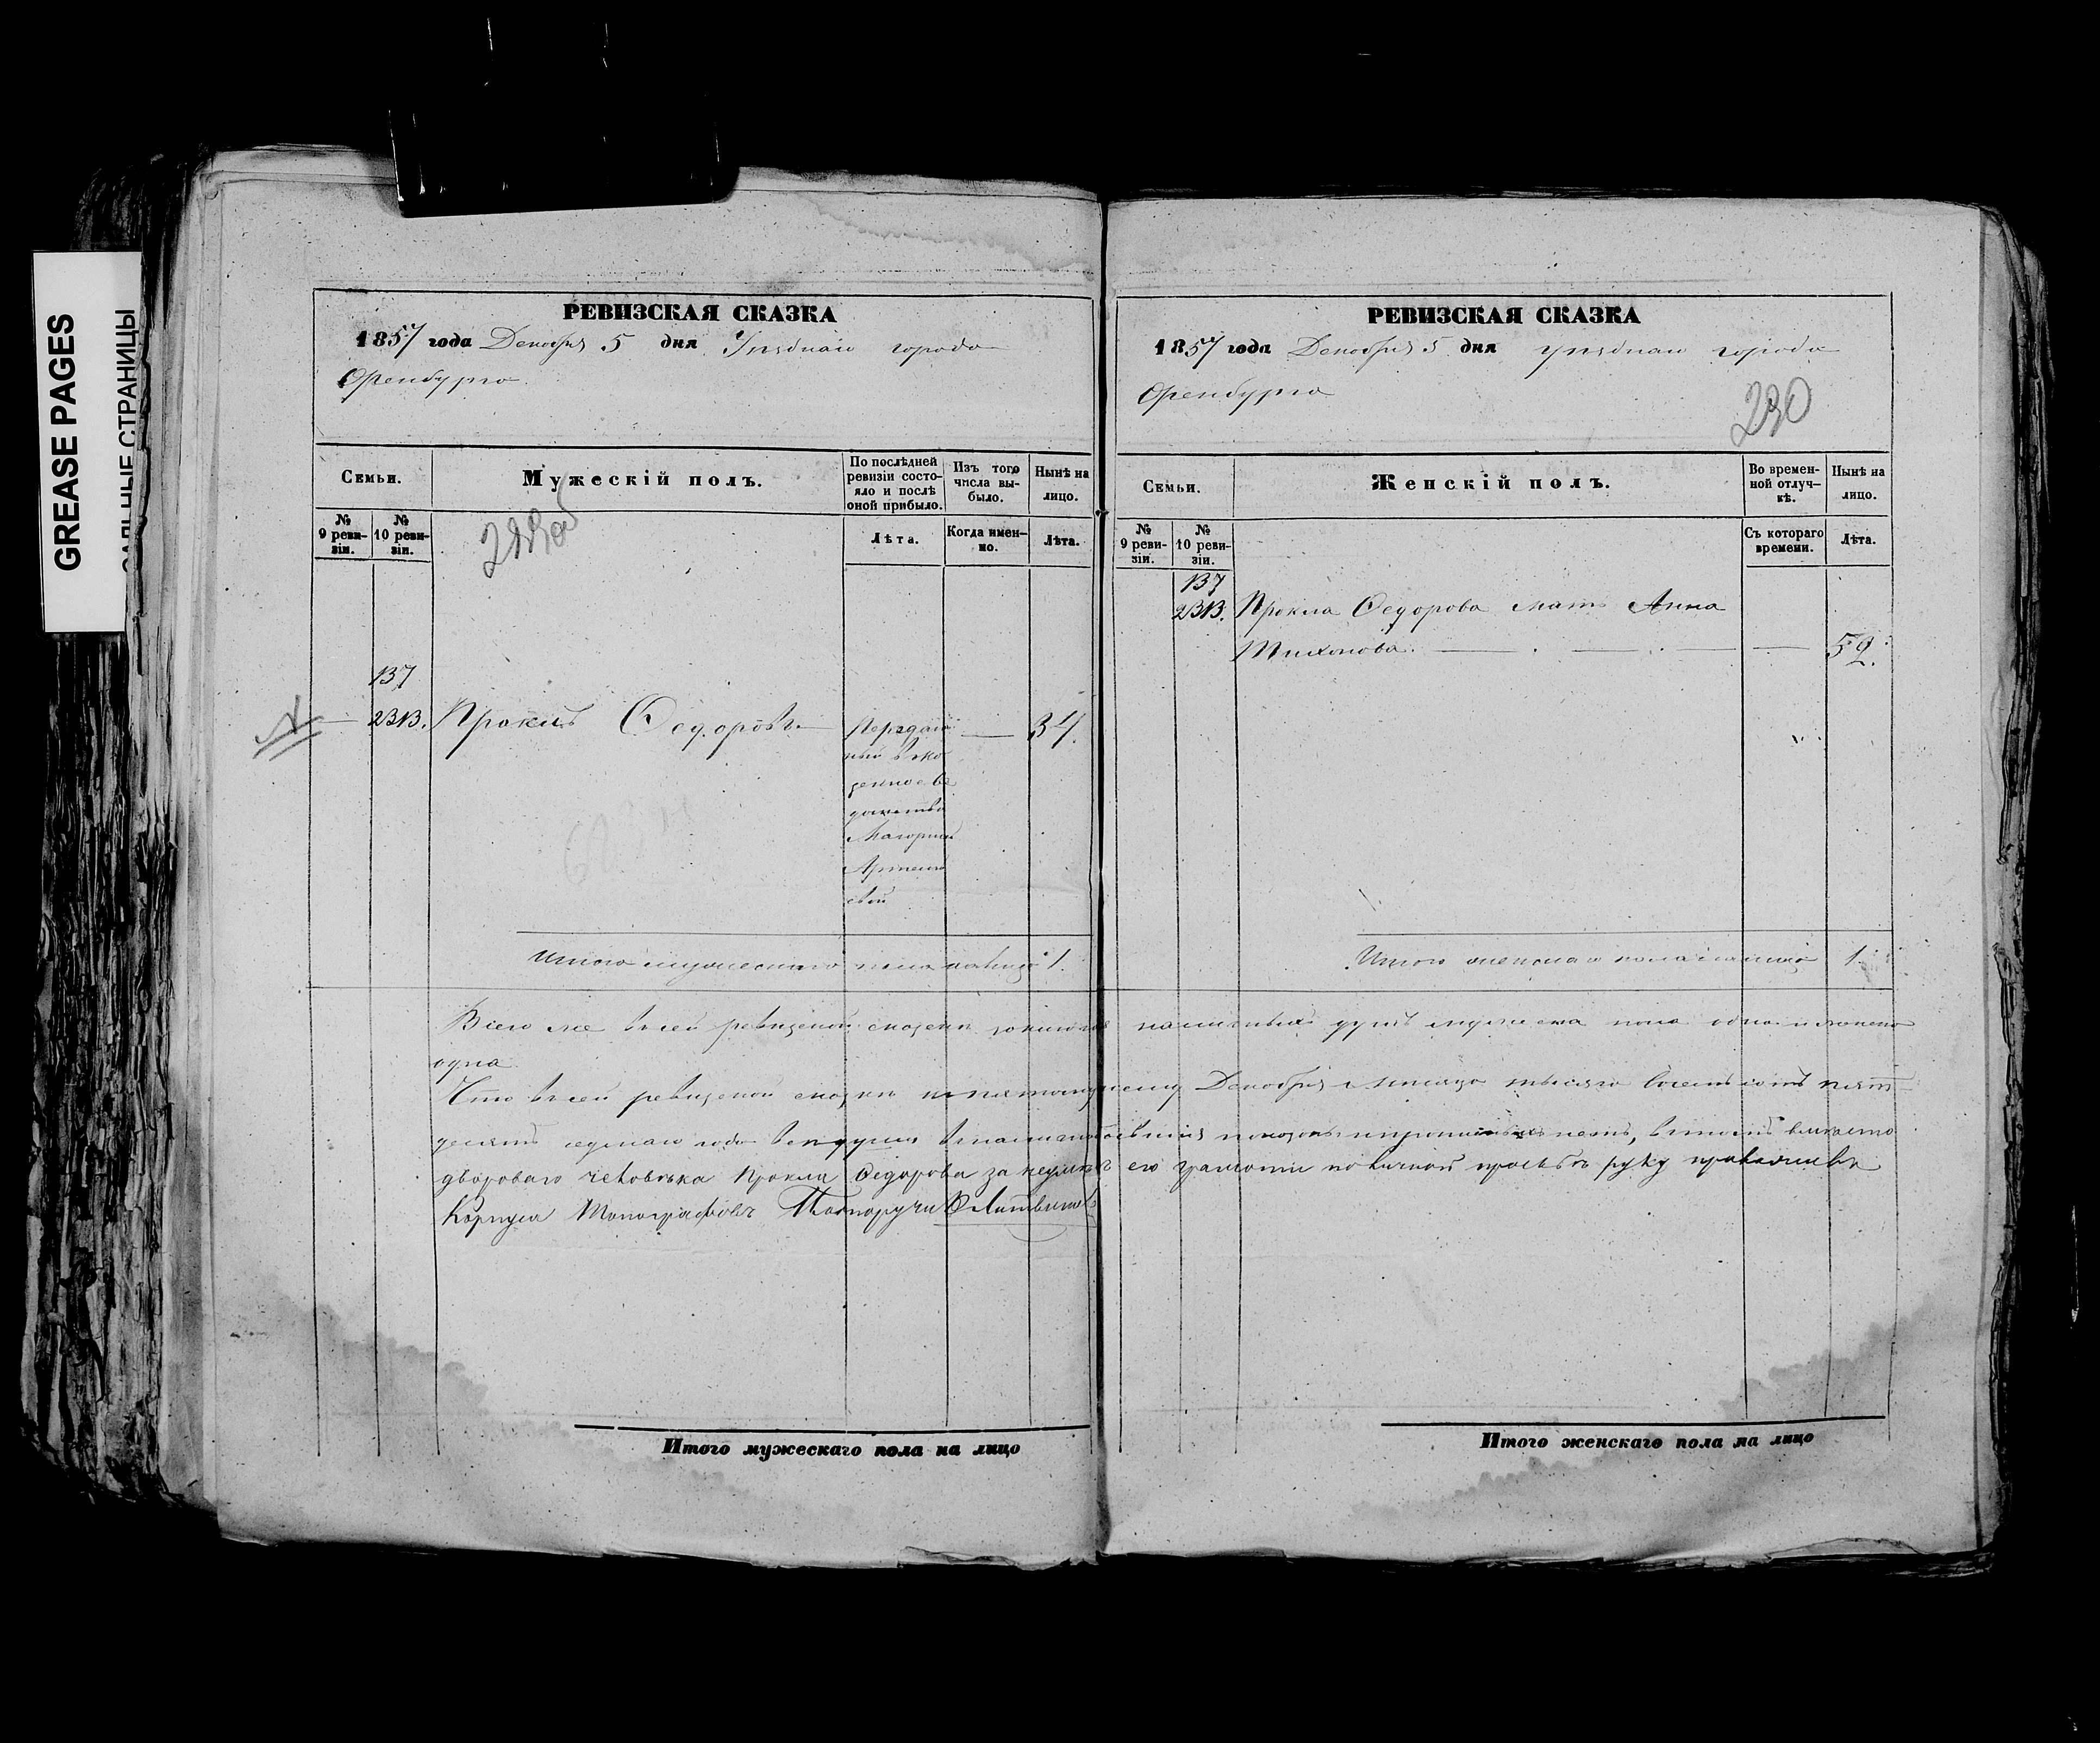 GREASE PAGES
САЛЬНЫЕ СТРАНИЦЫ
РЕВИЗСКАЯ СКАЗКА
1857 года Декабря 5 дня Уѣзднаго города
Оренбурга
Семьи.
Мужескій полъ.
По послѣдней ревизіи состо-
яло и послѣ
оной прибыло.
Изъ того
числа вы-
было.
Нынѣ на
лицо.
№
9 реви-
зіи.
№
10 реви-
зіи.
Лѣта.
Когда имен-
но.
Лѣта.
137
233. Проклъ Ѳедоровъ 34.
Передан
ный въ ка
зенное вѣ
домство
Итого мужескаго пола на лицо 1.
РЕВИЗСКАЯ СКАЗКА
1857 года Декабря 5 дня уѣзднаго города
Оренбурга
290
Семьи.
Женскій полъ.
Во времен-
ной отлуч-
кѣ.
Нынѣ на
лицо.
№
9 реви-
зіи.
№
10 реви-
зіи.
Съ котораго
времени.
Лѣта.
137
233. Прокла Ѳедорова мать Анна
Тихонова. 52.
Итого женскаго пола на лицо 1.
Всего же въ сей ревизской сказкѣ наличныхъ душъ мужеска пола одна и женска
одна
Что въ сей ревизской сказкѣ Декабря мѣсяца тысяча восемьсотъ пять
десятъ седьмаго года всѣ души нѣтъ, въ томъ вмѣсто
двороваго человѣка Прокла Ѳедорова за неумѣніемъ его грамоти по личной прозьбѣ руку приложилъ
Корпуса Топографовъ Подпоручикъ Литвиновъ
Итого мужескаго пола на лицо
Итого женскаго пола на лицо